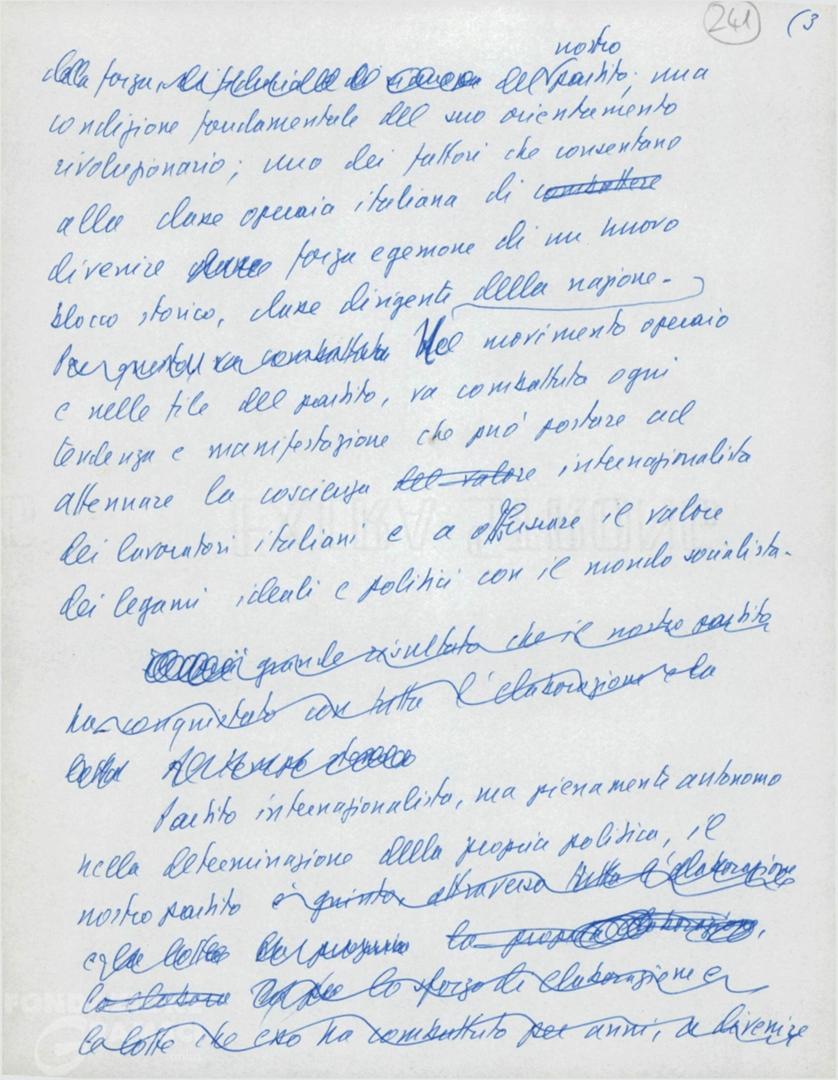 241 (3
nostro
della forza, del partito; una
condizione fondamentale del suo orientamento
rivoluzionario; uno dei fattori che consentano
alla classe operaia italiana di combattere
divenire classe forza egemone di un nuovo
blocco storico, classe dirigente della nazione.
Per questo va combattuta Nel movimento operaio
e nelle file del partito, va combattuta ogni
tendenza e manifestazione che può portare ad
attenuare la coscienza del valore internazionalista
dei lavoratori italiani e a offuscare il valore
dei legami ideali e politici con il mondo socialista.
grande risultato che il nostro partito
ha conquistato con tutta l'elaborazione e la
lotta
Partito internazionalista, ma pienamente autonomo
nella determinazione della propria politica, il
nostro partito è giunto, attraverso tutta l'elaborazione
e le lotte la propria elaborazione,
lo sforzo di elaborazione e
le lotte che esso ha combattuto per anni, a divenire